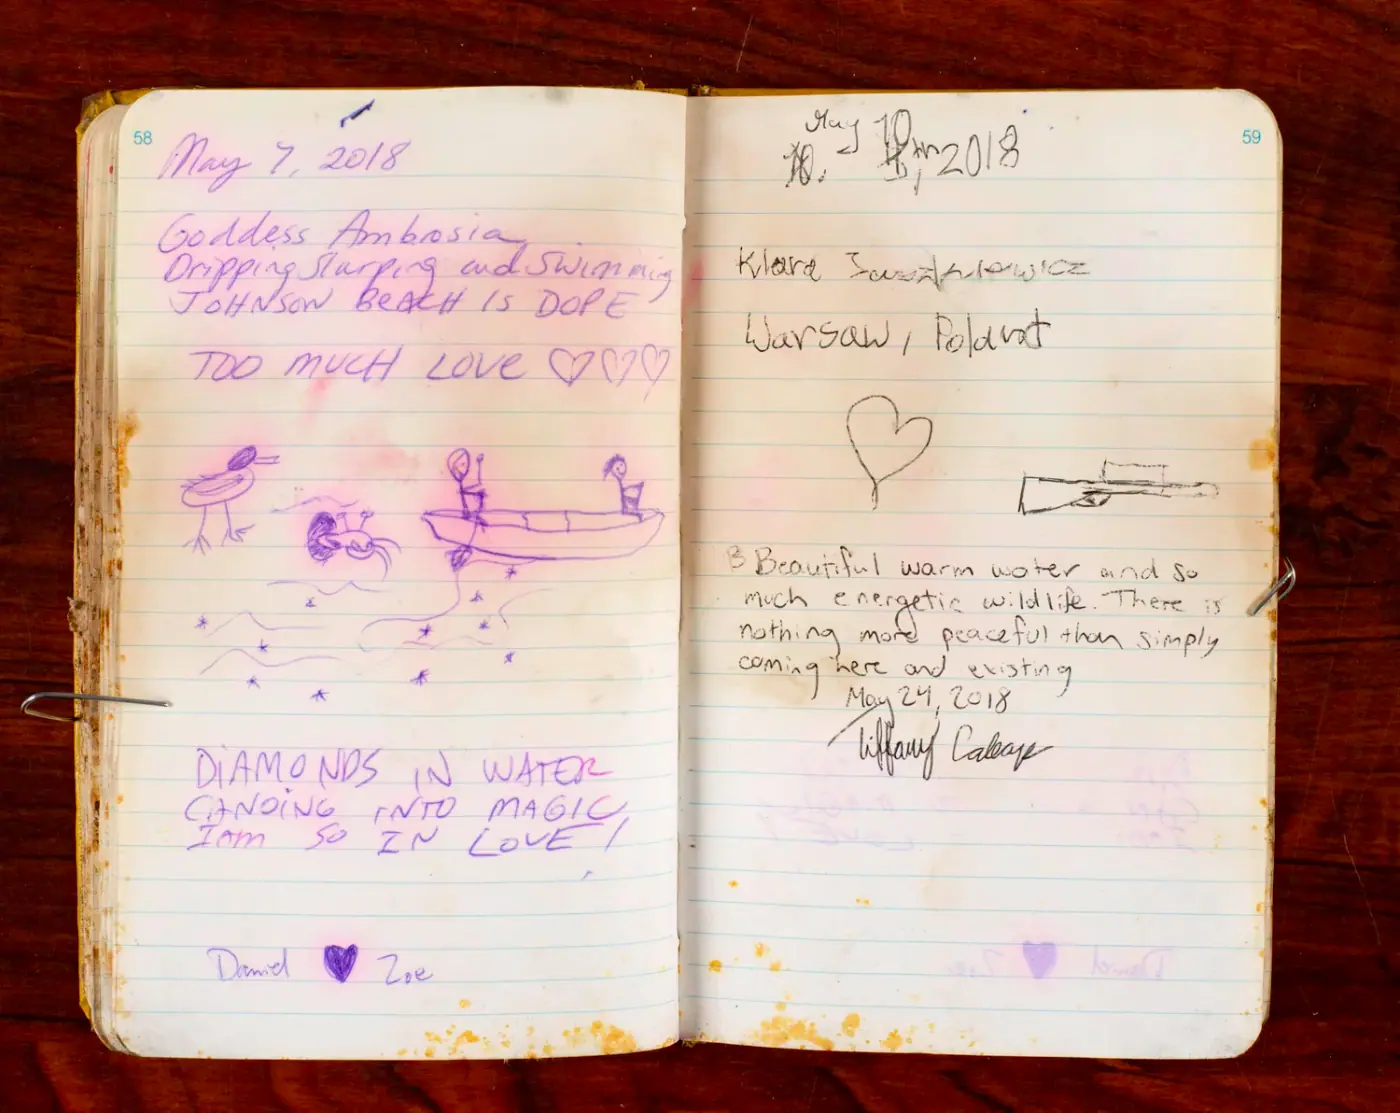 58
May 7, 2018
Goddess Ambrosia
Dripping Slurping and Swimming
JOHNSON BEACH IS DOPE
TOO MUCH LOVE ♡♡♡
DIAMONDS IN WATER
CANOING INTO MAGIC,
I am SO IN LOVE!
Daniel ♥ Zoe
59
May 10
10. th, 2018
Klara
Warsaw, Poland
Beautiful warm water and so
much energetic wildlife. There is
nothing more peaceful than simply
coming here and existing
May 24, 2018
Tiffany